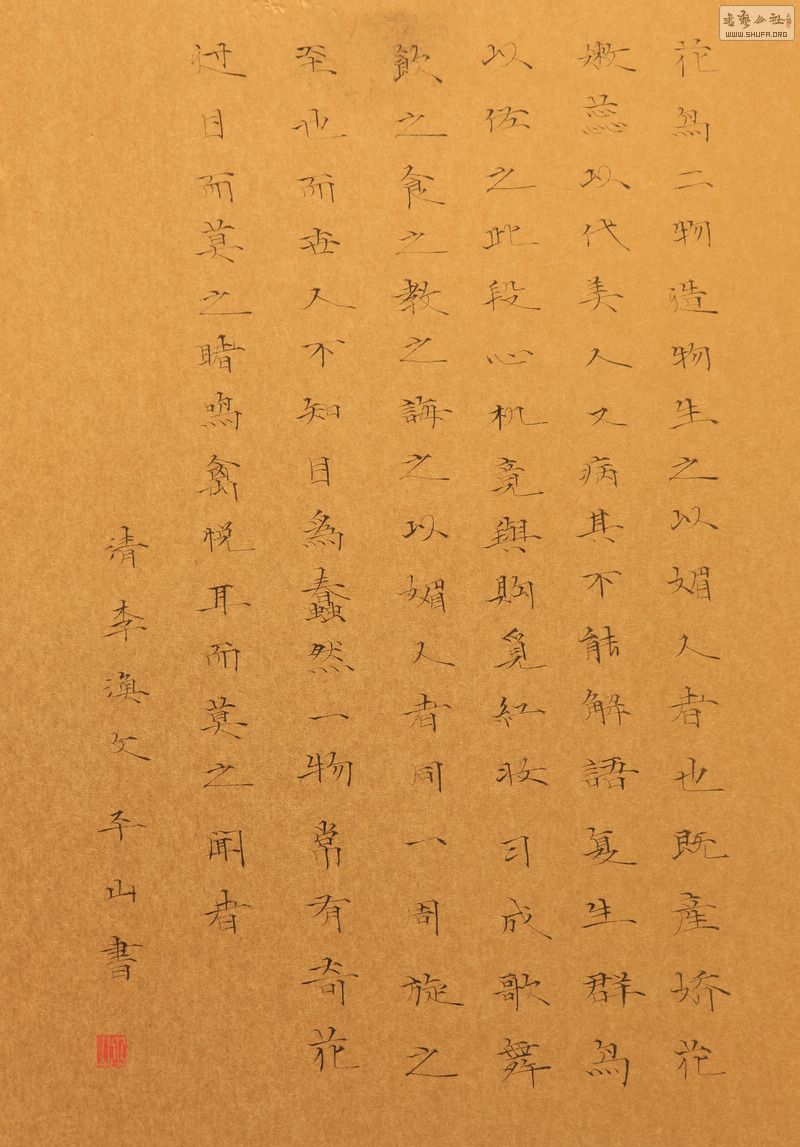 花鸟二物造物生之以媚人者也既產嬌花
嫩蕊以代美人又病其不能解語复生群鸟
以佐之此段心机竟與購覓红妆习成歌舞
飲之食之教之誨之以媚人者同一周旋之
至也而世人不知目為蠢然一物常有奇花
过目而莫之睹鸣禽悦耳而莫之闻者
清李渔文 子山書
書藝公社
WWW.SHUFA.ORG